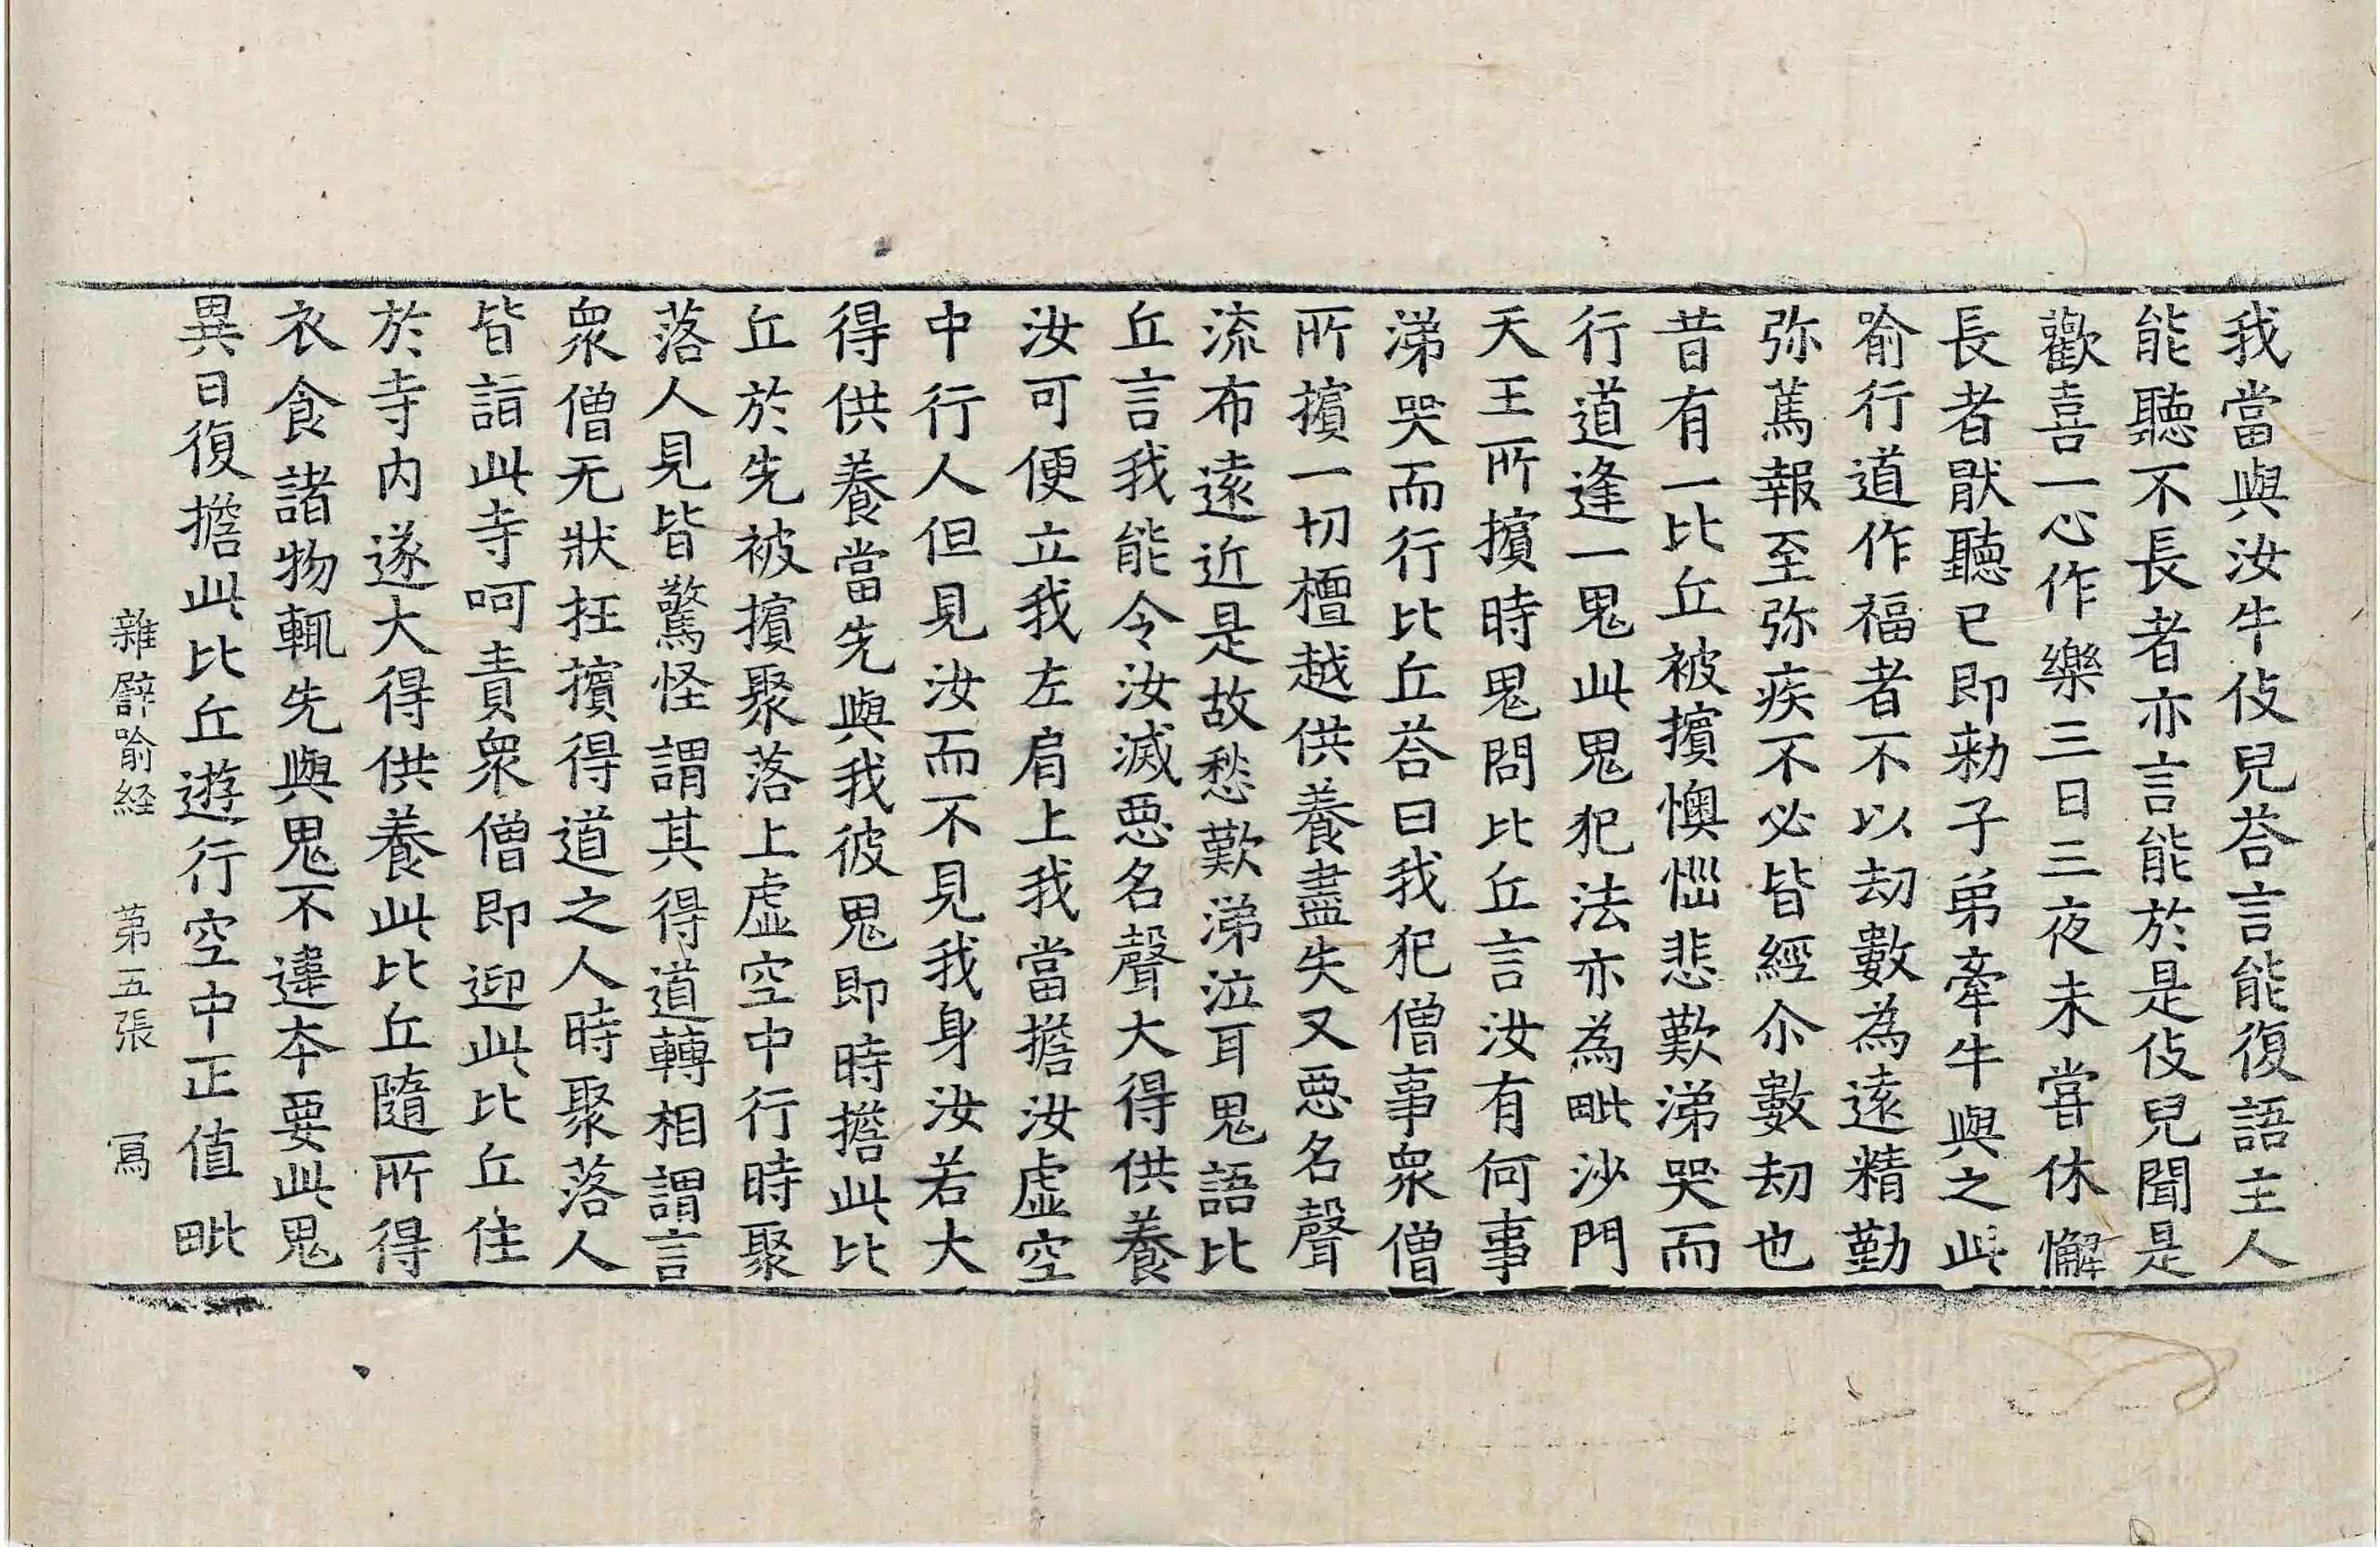 我當與汝牛伎兒荅言能復語主人
能聽不長者亦言能於是伎兒聞是
歡喜一心作樂三日三夜未甞休懈
長者猒聽已即勑子弟牽牛與之此
喻行道作福者不以劫數為遠精勤
弥篤報至弥疾不必皆經尒數劫也
昔有一比丘被擯懊惱悲歎涕哭而
行道逢一鬼此鬼犯法亦為毗沙門
天王所擯時鬼問比丘言汝有何事
涕哭而行比丘荅曰我犯僧事衆僧
所擯一切檀越供養盡失又惡名聲
流布遠近是故愁歎涕泣耳鬼語比
丘言我能令汝滅惡名聲大得供養
汝可便立我左肩上我當擔汝虛空
中行人但見汝而不見我身汝若大
得供養當先與我彼鬼即時擔此比
丘於先被擯聚落上虛空中行時聚
落人見皆驚怪謂其得道轉相謂言
衆僧无狀抂擯得道之人時聚落人
皆詣此寺呵責衆僧即迎此比丘住
於寺内遂大得供養此比丘隨所得
衣食諸物輒先與鬼不違本要此鬼
異日復擔此比丘遊行空中正值毗
雜譬喻経　第五張　冩